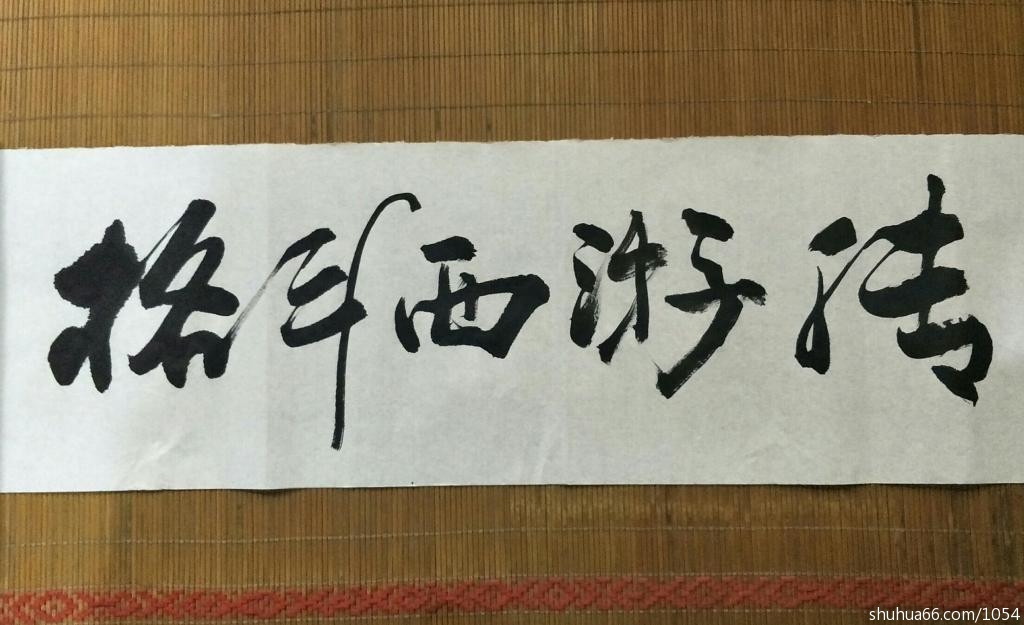 格斗西游传
shuhua66.com/1054